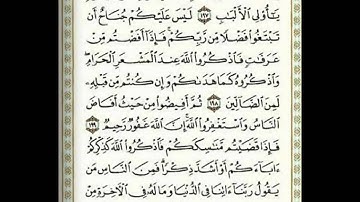 يَٰٓأُو۟لِى ٱلْأَلْبَٰبِ ١٩٧ لَيْسَ عَلَيْكُمْ جُنَاحٌ أَن
تَبْتَغُوا۟ فَضْلًا مِّن رَّبِّكُمْ ۚ فَإِذَآ أَفَضْتُم مِّنْ
عَرَفَٰتٍ فَٱذْكُرُوا۟ ٱللَّهَ عِندَ ٱلْمَشْعَرِ ٱلْحَرَامِ ۖ
وَٱذْكُرُوهُ كَمَا هَدَىٰكُمْ وَإِن كُنتُم مِّن قَبْلِهِۦ
لَمِنَ ٱلضَّآلِّينَ ١٩٨ ثُمَّ أَفِيضُوا۟ مِنْ حَيْثُ أَفَاضَ
ٱلنَّاسُ وَٱسْتَغْفِرُوا۟ ٱللَّهَ ۚ إِنَّ ٱللَّهَ غَفُورٌ رَّحِيمٌ ١٩٩
فَإِذَا قَضَيْتُم مَّنَٰسِكَكُمْ فَٱذْكُرُوا۟ ٱللَّهَ كَذِكْرِكُمْ
ءَابَآءَكُمْ أَوْ أَشَدَّ ذِكْرًا ۗ فَمِنَ ٱلنَّاسِ مَن
يَقُولُ رَبَّنَآ ءَاتِنَا فِى ٱلدُّنْيَا وَمَا لَهُۥ فِى ٱلْءَاخِرَةِ مِنْ